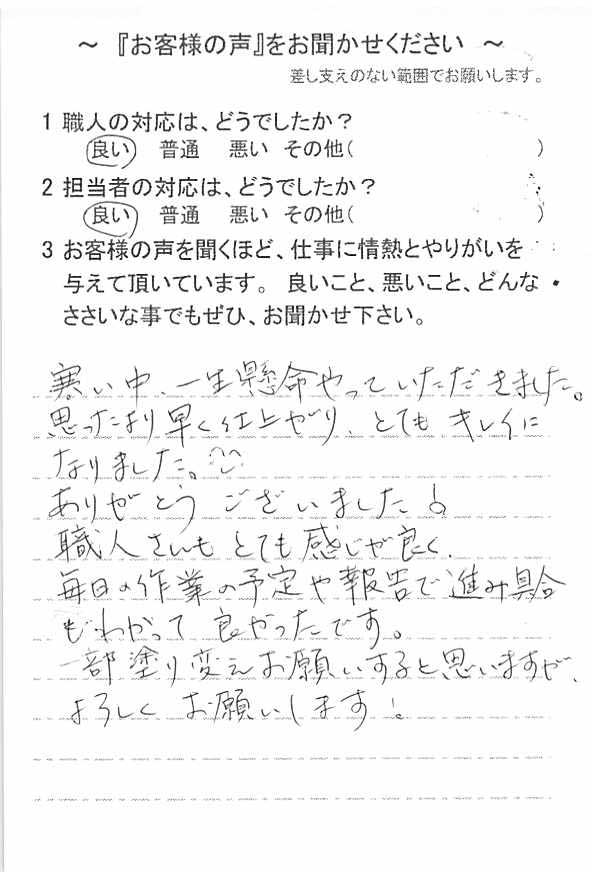 ～ 『お客様の声』をお聞かせください ～
差し支えのない範囲でお願いします。
1 職人の対応は、どうでしたか？
良い 普通 悪い その他( )
2 担当者の対応は、どうでしたか？
良い 普通 悪い その他( )
3 お客様の声を聞くほど、仕事に情熱とやりがいを
与えて頂いています。 良いこと、悪いこと、どんな
ささいな事でもぜひ、お聞かせ下さい。
寒い中、一生懸命やっていただきました。
思ったより早く仕上がり、とてもキレイに
なりました。
ありがとうございました!
職人さんもとても感じが良く、
毎日の作業の予定や報告で進み具合
もわかって良かったです。
一部塗り変えお願いすると思いますが、
よろしくお願いします!